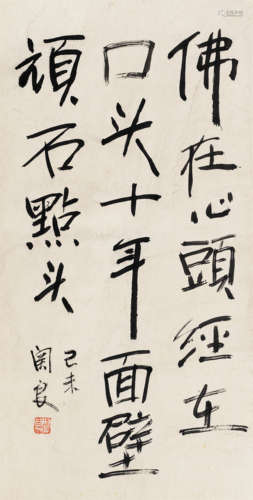 佛在心頭經在
口头十年面壁
頑石點头
己未
關良